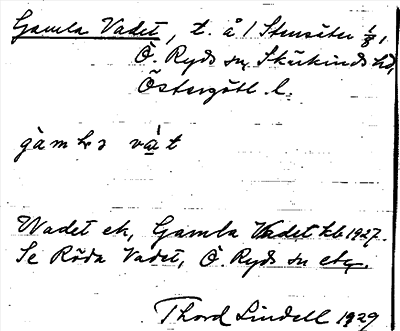 Gamla Vadet, t. å 1 Stensäter 1/8,
Ö. Ryds sn, Skärkinds hd,
Östergötl. l.
Wadet ek, Gamla Vadet kb 1927.
Se Röda Vadet, Ö. Ryds sn etc.
Thord Lindell 1929